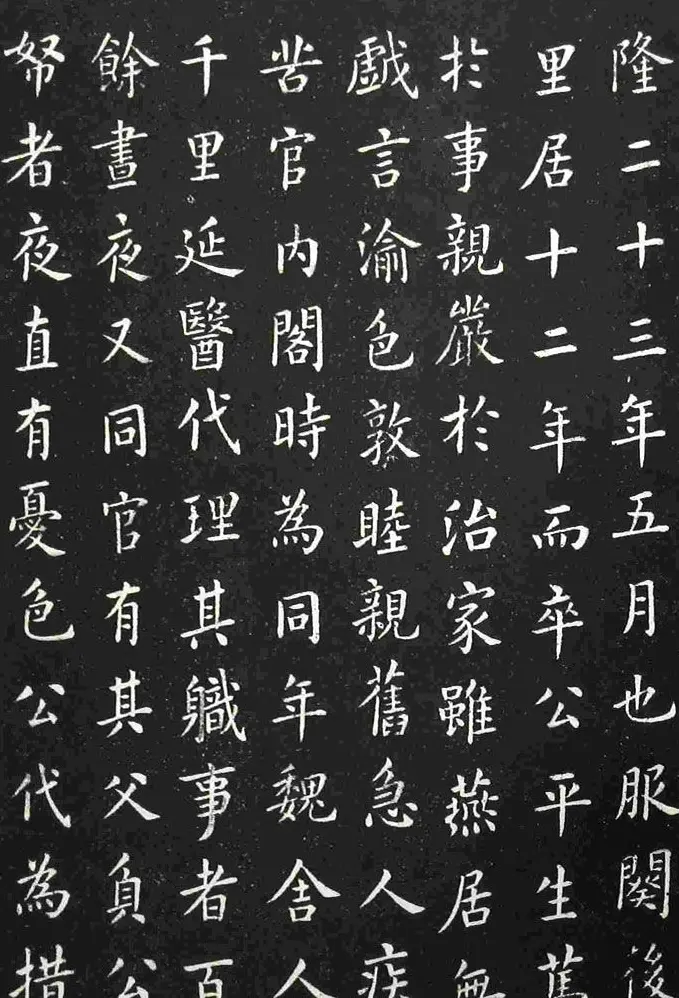 隆二十三年五月也服闋後
里居十二年而卒公平生篤
於事親嚴於治家雖燕居無
戲言渝色敦睦親舊急人疾
苦官内閣時為同年魏舍人
千里延醫代理其軄事者百
餘晝夜又同官有其父負公
帑者夜直有憂色公代為措